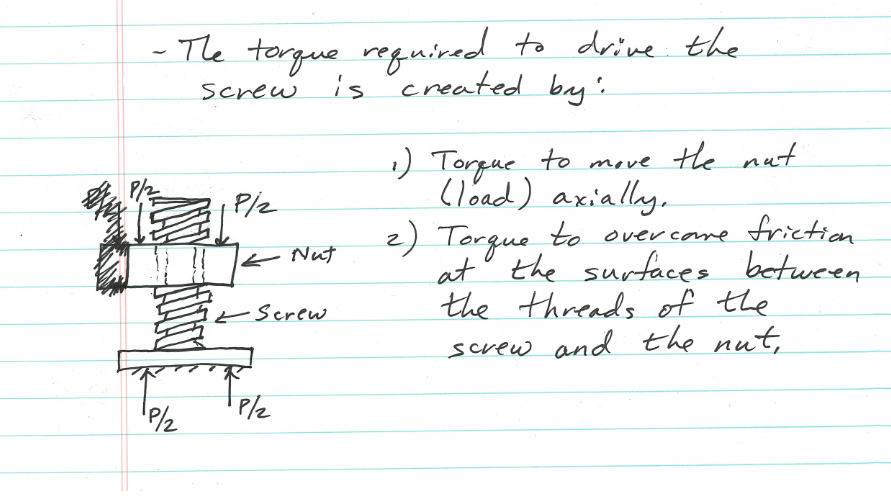 - The torque required to drive the
screw is created by:
1) Torque to move the nut
(load) axially.
2) Torque to overcome friction
at the surfaces between
the threads of the
screw and the nut,
P/2
P/2
Nut
Screw
P/2
P/2